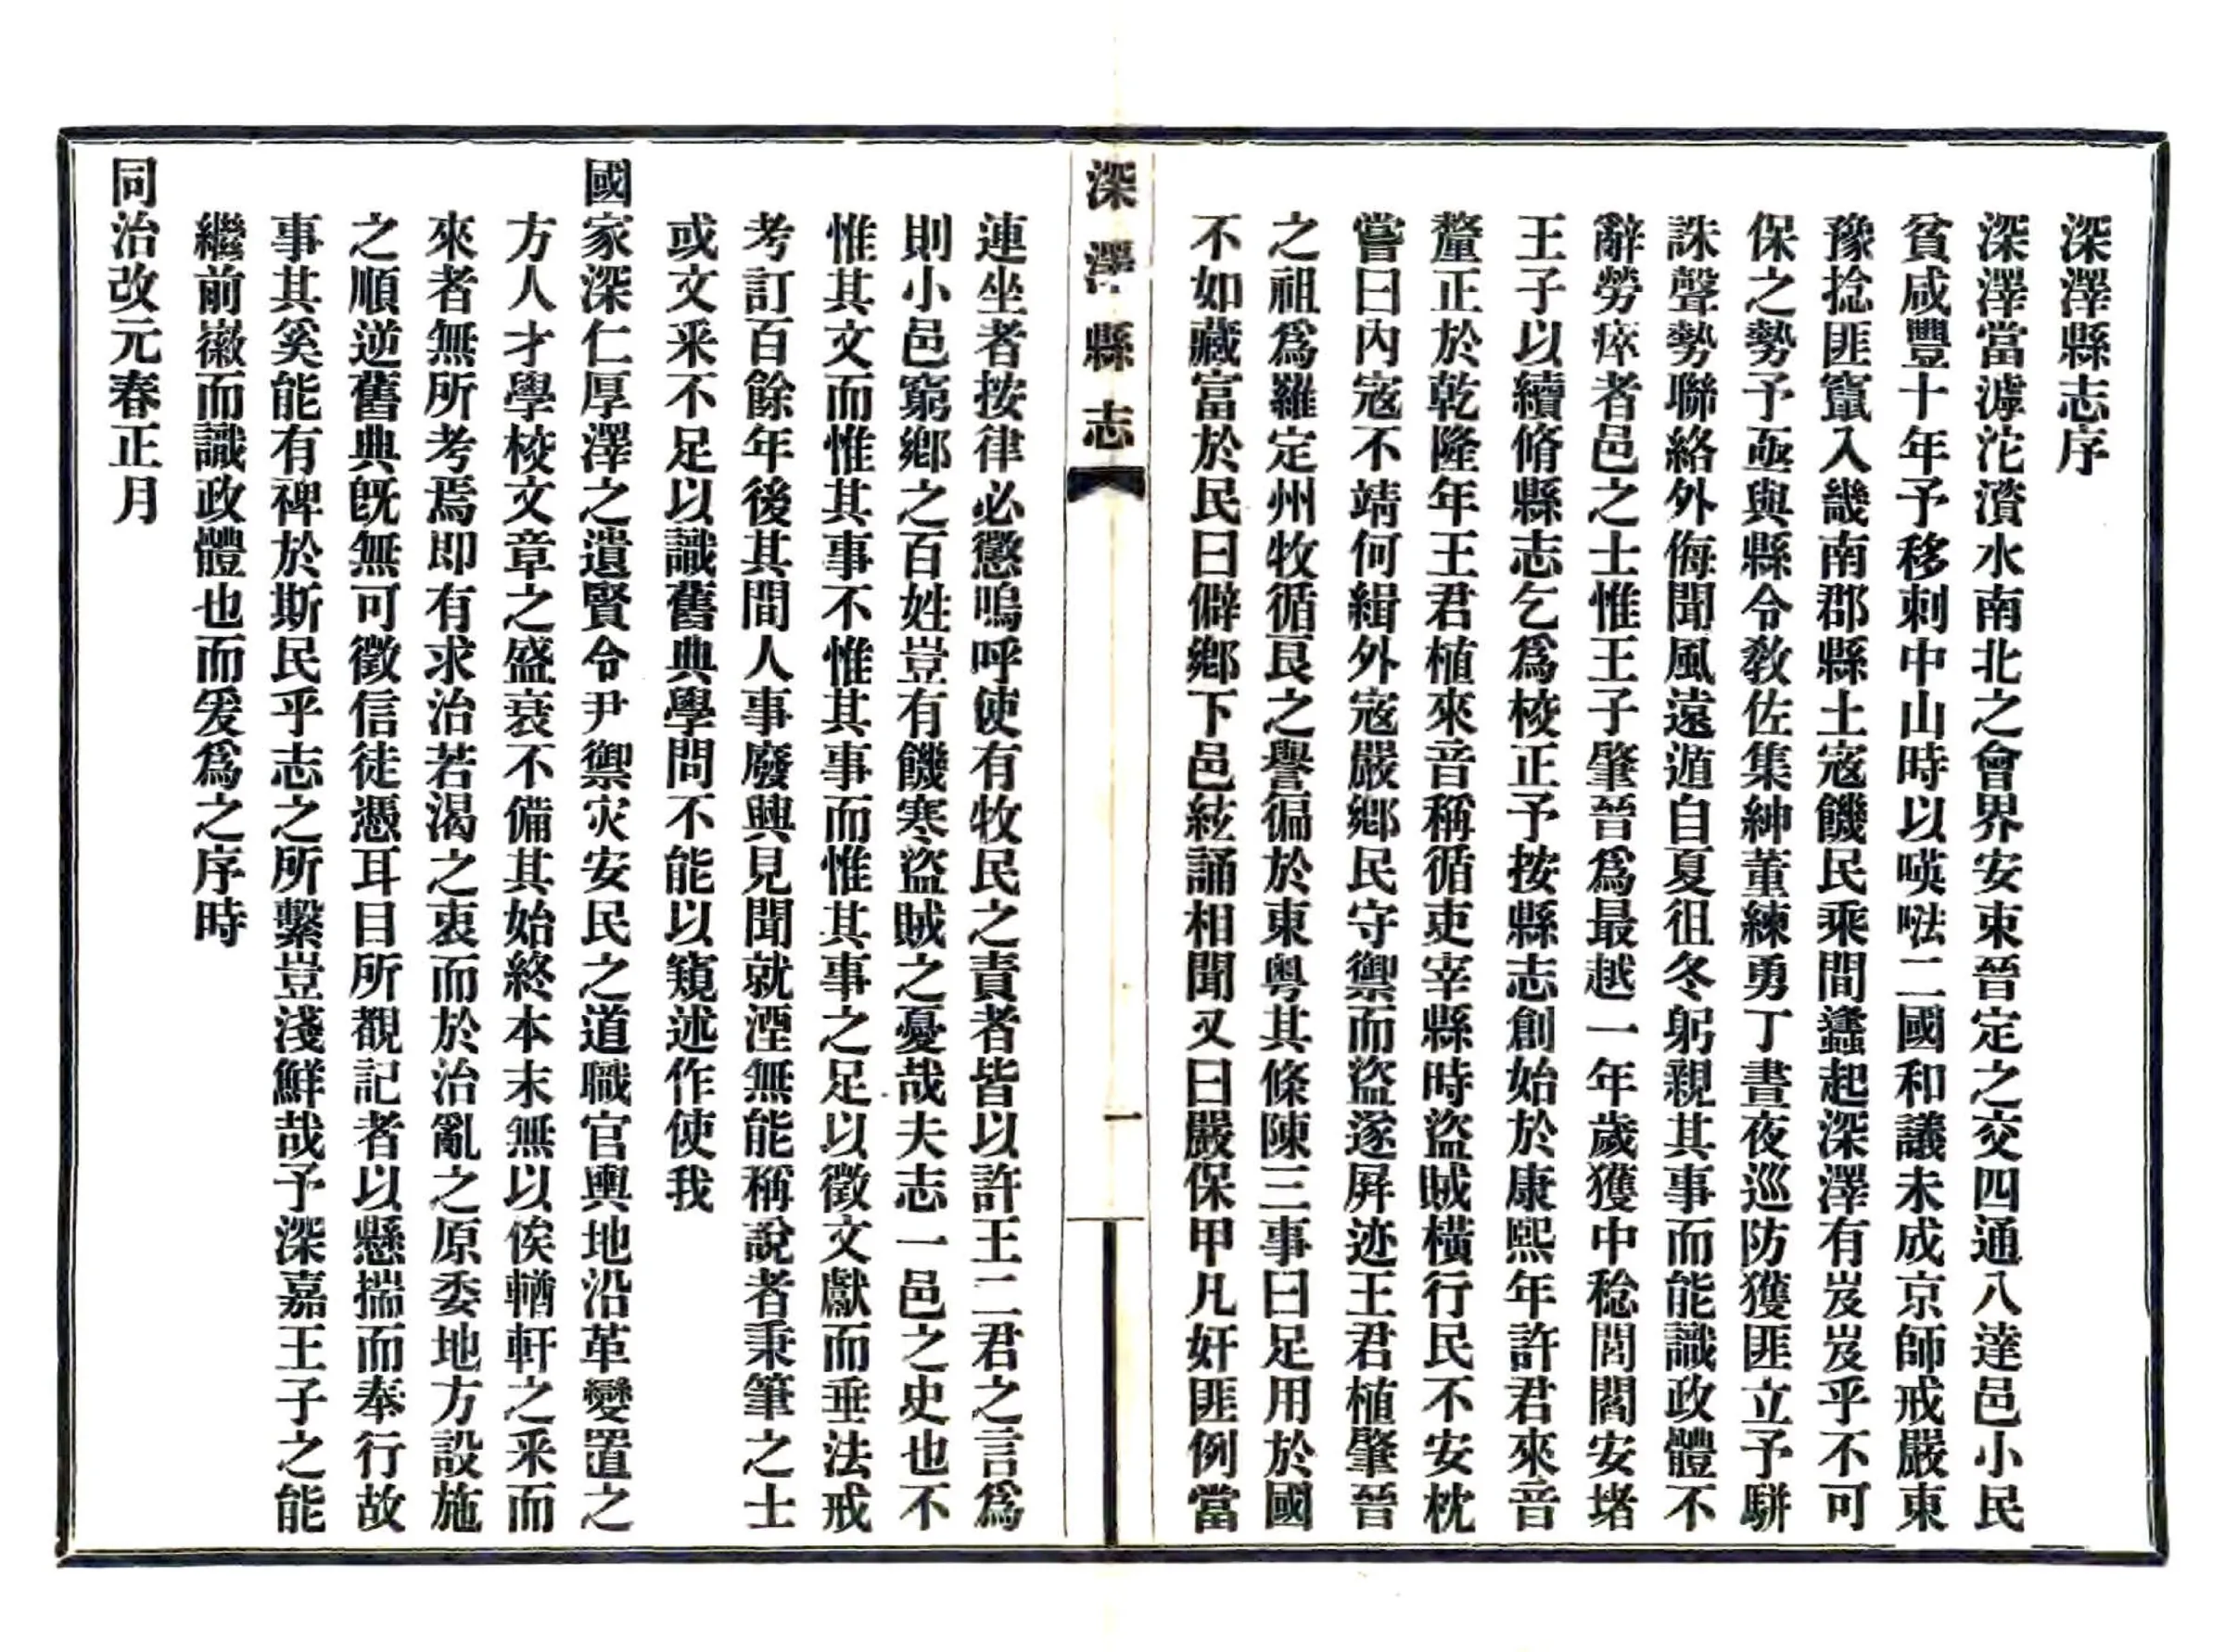 深澤縣志序
深澤當滹沱濱水南北之會界安束晉定之交四通八達邑小民
貧咸豐十年予移刺中山時以㗲㕵二國和議未成京師戒嚴東
豫捻匪竄入畿南郡縣土寇饑民乘間蠭起深澤有岌岌乎不可
保之勢予亟與縣令敎佐集紳董練勇丁晝夜巡防獲匪立予駢
誅聲勢聯絡外侮聞風遠遁自夏徂冬躬親其事而能識政體不
辭勞瘁者邑之士惟王子肇晉爲最越一年歲獲中稔閭閻安堵
王子以續脩縣志乞爲校正予按縣志創始於康熙年許君來音
釐正於乾隆年王君植來音稱循吏宰縣時盜賊橫行民不安枕
嘗曰內寇不靖何緝外寇嚴鄉民守禦而盜遂屏迹王君植肇晉
之祖爲羅定州牧循艮之譽徧於東粤其條陳三事曰足用於國
不如藏富於民曰僻鄉下邑絃誦相聞又曰嚴保甲凡奸匪例當
深澤縣志
一
連坐者按律必懲嗚呼使有牧民之責者皆以許王二君之言爲
則小邑窮鄉之百姓豈有饑寒盜賊之憂哉夫志一邑之史也不
惟其文而惟其事不惟其事而惟其事之足以徵文獻而垂法戒
考訂百餘年後其間人事廢興見聞就湮無能稱說者秉筆之士
或文釆不足以識舊典學問不能以窺述作使我
國家深仁厚澤之遺賢令尹禦灾安民之道職官輿地沿革變置之
方人才學校文章之盛衰不備其始終本末無以俟輶軒之釆而
來者無所考焉即有求治若渴之衷而於治亂之原委地方設施
之順逆舊典旣無可徵信徒憑耳目所覩記者以懸揣而奉行故
事其奚能有裨於斯民乎志之所繫豈淺鮮哉予深嘉王子之能
繼前徽而識政體也而爰爲之序時
同治改元春正月